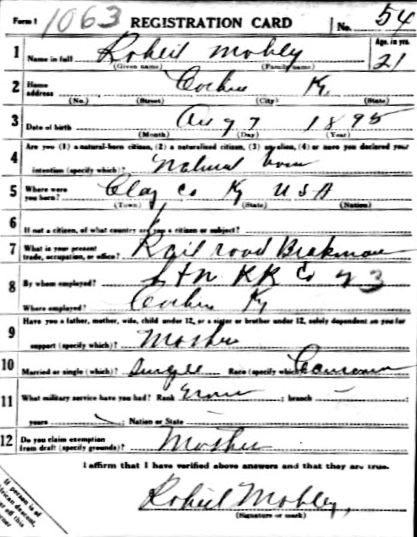 Form 1 1063 REGISTRATION CARD No. 54
1 Name in full Robert Mobley Age, in yrs. 21
(Given name) (Family name)
2 Home address Corbin Ky.
(No.) (Street) (City) (State)
3 Date of birth Aug 7 1895
(Month) (Day) (Year)
4 Are you (1) a natural-born citizen, (2) a naturalized citizen, (3) an alien, (4) or have you declared your
intention (specify which)? Natural born
5 Where were you born? Clay Co Ky USA
(Town) (State) (Nation)
6 If not a citizen, of what country are you a citizen or subject?
7 What is your present trade, occupation, or office? Rail road Brakeman
8 By whom employed? L+N RR Co
Where employed? Corbin Ky
9 Have you a father, mother, wife, child under 12, or a sister or brother under 12, solely dependent on you for
support (specify which)? Mother
10 Married or single (which)? Single Race (specify which)? Caucasian
11 What military service have you had? Rank None ; branch
years ; Nation or State
12 Do you claim exemption from draft (specify grounds)? Mother
I affirm that I have verified above answers and that they are true.
Robert Mobley,
(Signature or mark)
If person is of
African descent,
off this
corner